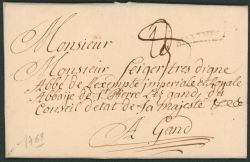 Monsieur
Monsieur feiger tres digne
Abbé de L'exempte imperiale et Royale
Abbaïe de St Pierre Lez gand, du
Conseil d'etat de sa majesté &c &c
A Gand